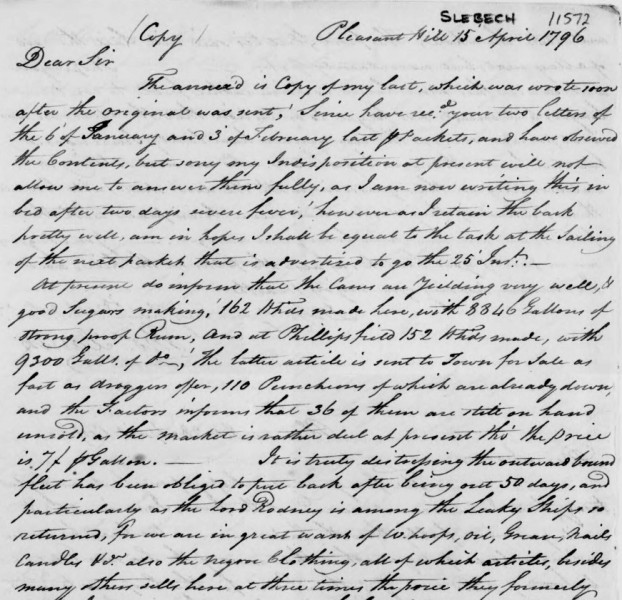 SLEBECH 11572
(Copy) Pleasant Hill 15 April 1796
Dear Sir
The annex'd is Copy of my last, which was wrote soon
after the original was sent, Since have rec.d your two letters of
the 6 of January and 3 of February last ⅌ Packets, and have observed
the Contents, but sorry my Indisposition at present will not
allow me to answer them fully, as I am now writing this in
bed after two days severe fever, however as I retain the bark
pretty well, am in hopes I shall be equal to the task at the Sailing
of the next packet that is advertized to go the 25 Inst. —
At present do inform that the Canes are Yielding very well, &
good Sugars making, 162 Hhds made here, with 8846 Gallons of
strong proof Rum, And at Phillipsfield 152 Hhds made, with
9300 Galls. of do —, the latter article is sent to Town for Sale as
fast as droggers offer, 110 Puncheons of which are already down,
and the Factors informs that 36 of them are still on hand
unsold, as the market is rather dul at present tho' the price
is 7/ ⅌ Gallon. — It is truly distressing the outward bound
fleet has been obliged to put back after being out 50 days, and
particularly as the Lord Rodney is among the Leaky Ships so
returned, For we are in great want of W. hoops, oil, Grease, Nails
Candles &c. also the negroe Clothing, all of which articles, besides
many others sells here at three times the price they formerly